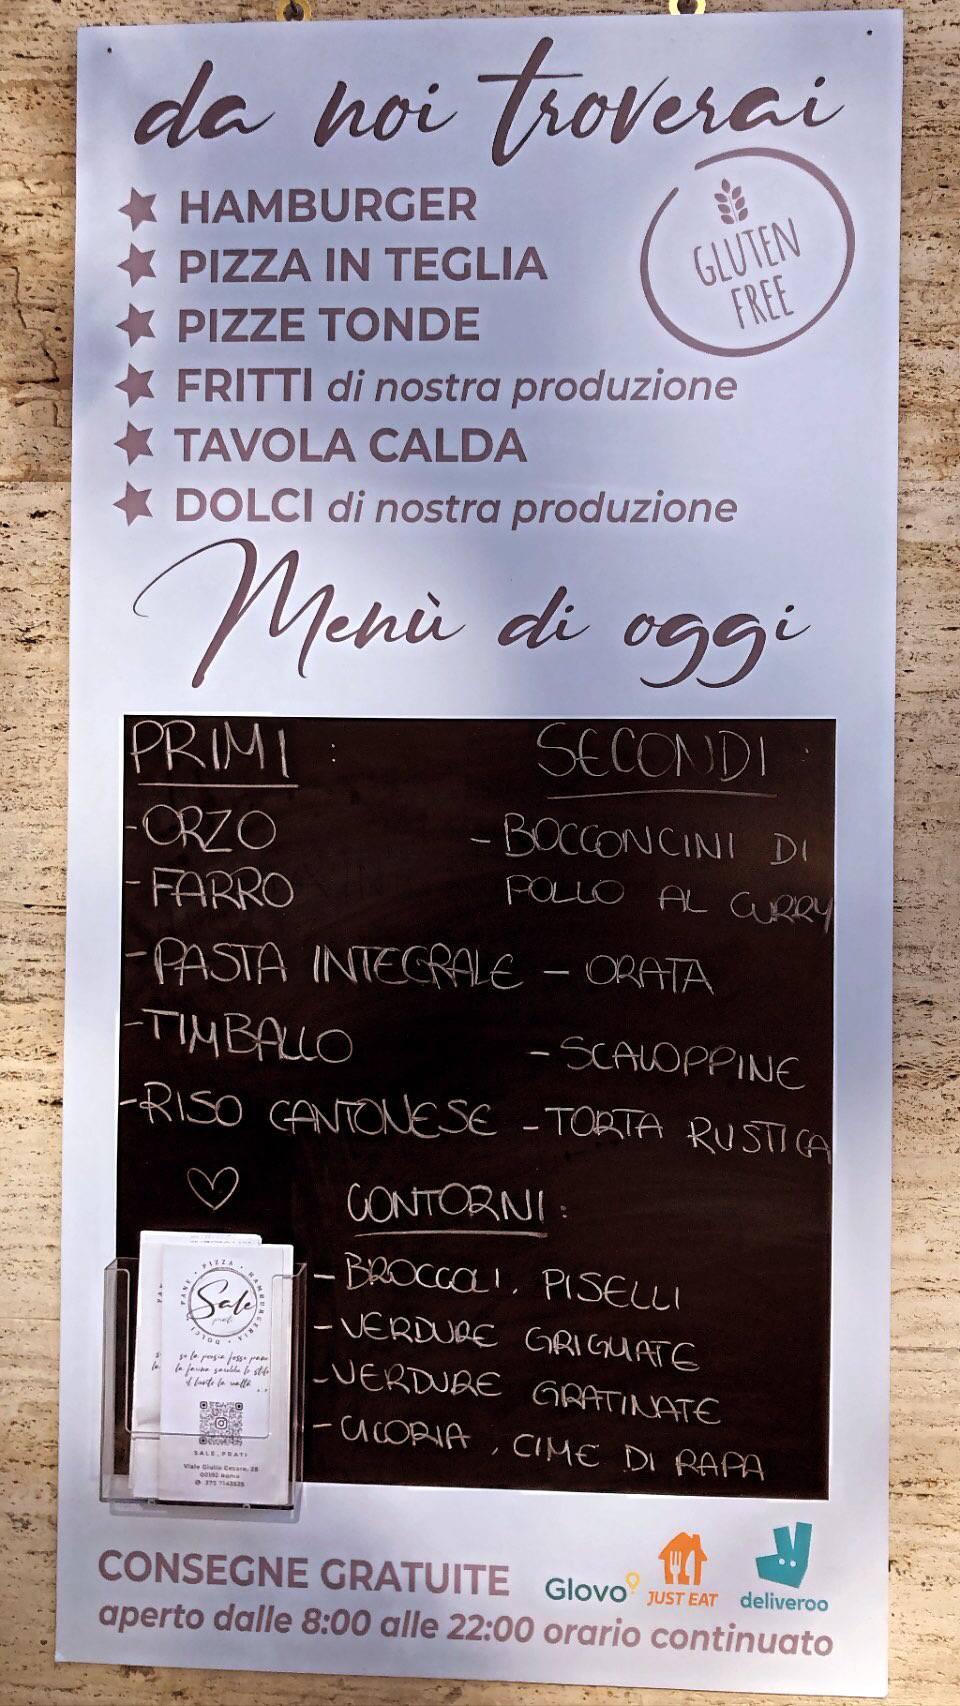 da noi troverai
HAMBURGER
PIZZA IN TEGLIA
PIZZE TONDE
FRITTI di nostra produzione
TAVOLA CALDA
DOLCI di nostra produzione
GLUTEN
FREE
Menù di oggi
PRIMI :
- ORZO
- FARRO
- PASTA INTEGRALE
- TIMBALLO
- RISO CANTONESE
SECONDI :
- BOCCONCINI DI
POLLO AL CURRY
- ORATA
- SCALOPPINE
- TORTA RUSTICA
CONTORNI :
- BROCCOLI, PISELLI
- VERDURE GRIGLIATE
- VERDURE GRATINATE
- CICORIA, CIME DI RAPA
PANE • PIZZA • HAMBURGERIA • DOLCI
Sale
prati
se la poesia fosse pane
la farina sarebbe lo stile
il lievito la
SALE_PRATI
Viale Giulio Cesare, 28
00192 Roma
CONSEGNE GRATUITE
Glovo
JUST EAT
deliveroo
aperto dalle 8:00 alle 22:00 orario continuato